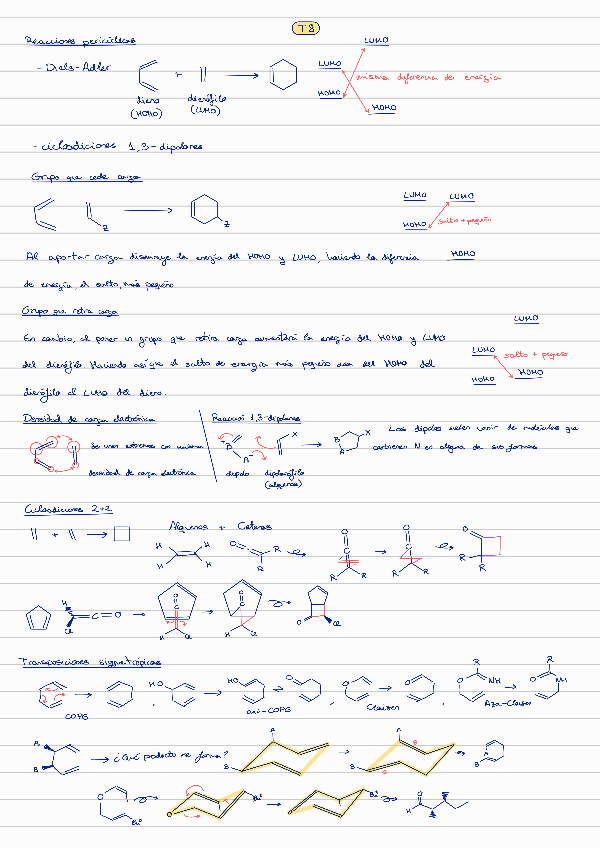 T8
Reacciones pericíclicas
- Diels-Alder
dieno
(HOMO)
+
dienófilo
(LUMO)
LUMO
LUMO
misma diferencia de energía
HOMO
HOMO
- cicloadiciones 1,3-dipolares
Grupo que cede carga
Z
Z
LUMO LUMO
salto + pequeño
HOMO
HOMO
Al aportar carga disminuye la energía del HOMO y LUMO, haciendo la diferencia
de energía, el salto, más pequeño
Grupo que retira carga
En cambio, al poner un grupo que retira carga aumentará la energía del HOMO y LUMO
del dienófilo haciendo así que el salto de energía más pequeño sea del HOMO del
dienófilo al LUMO del dieno.
LUMO
LUMO
salto + pequeño
HOMO
HOMO
Densidad de carga electrónica
Se unen extremos con misma
densidad de carga electrónica
Reacción 1,3-dipolares
B
A
X
dipolo
dipolarófilo
(alquenos)
B
A
X
Los dipolos suelen venir de moléculas que
contienen N en alguna de sus formas
Cicloadiciones 2+2
+
Alquenos + Cetenas
H H
H H
O C R
R
O
C
R R
O
C
R R
O
R
R
H
Cl
C = O
O
C
H Cl
O
C
H Cl
O
Cl
Transposiciones sigmatrópicas
COPE
HO
HO
O
oxi-COPE
O
O
Claisen
R
O NH
R
O NH
Aza-Claisen
A
B
¿Qué producto se forma?
A
B
A
B
B
O
Bu
O
Bu
O
Bu
O
H